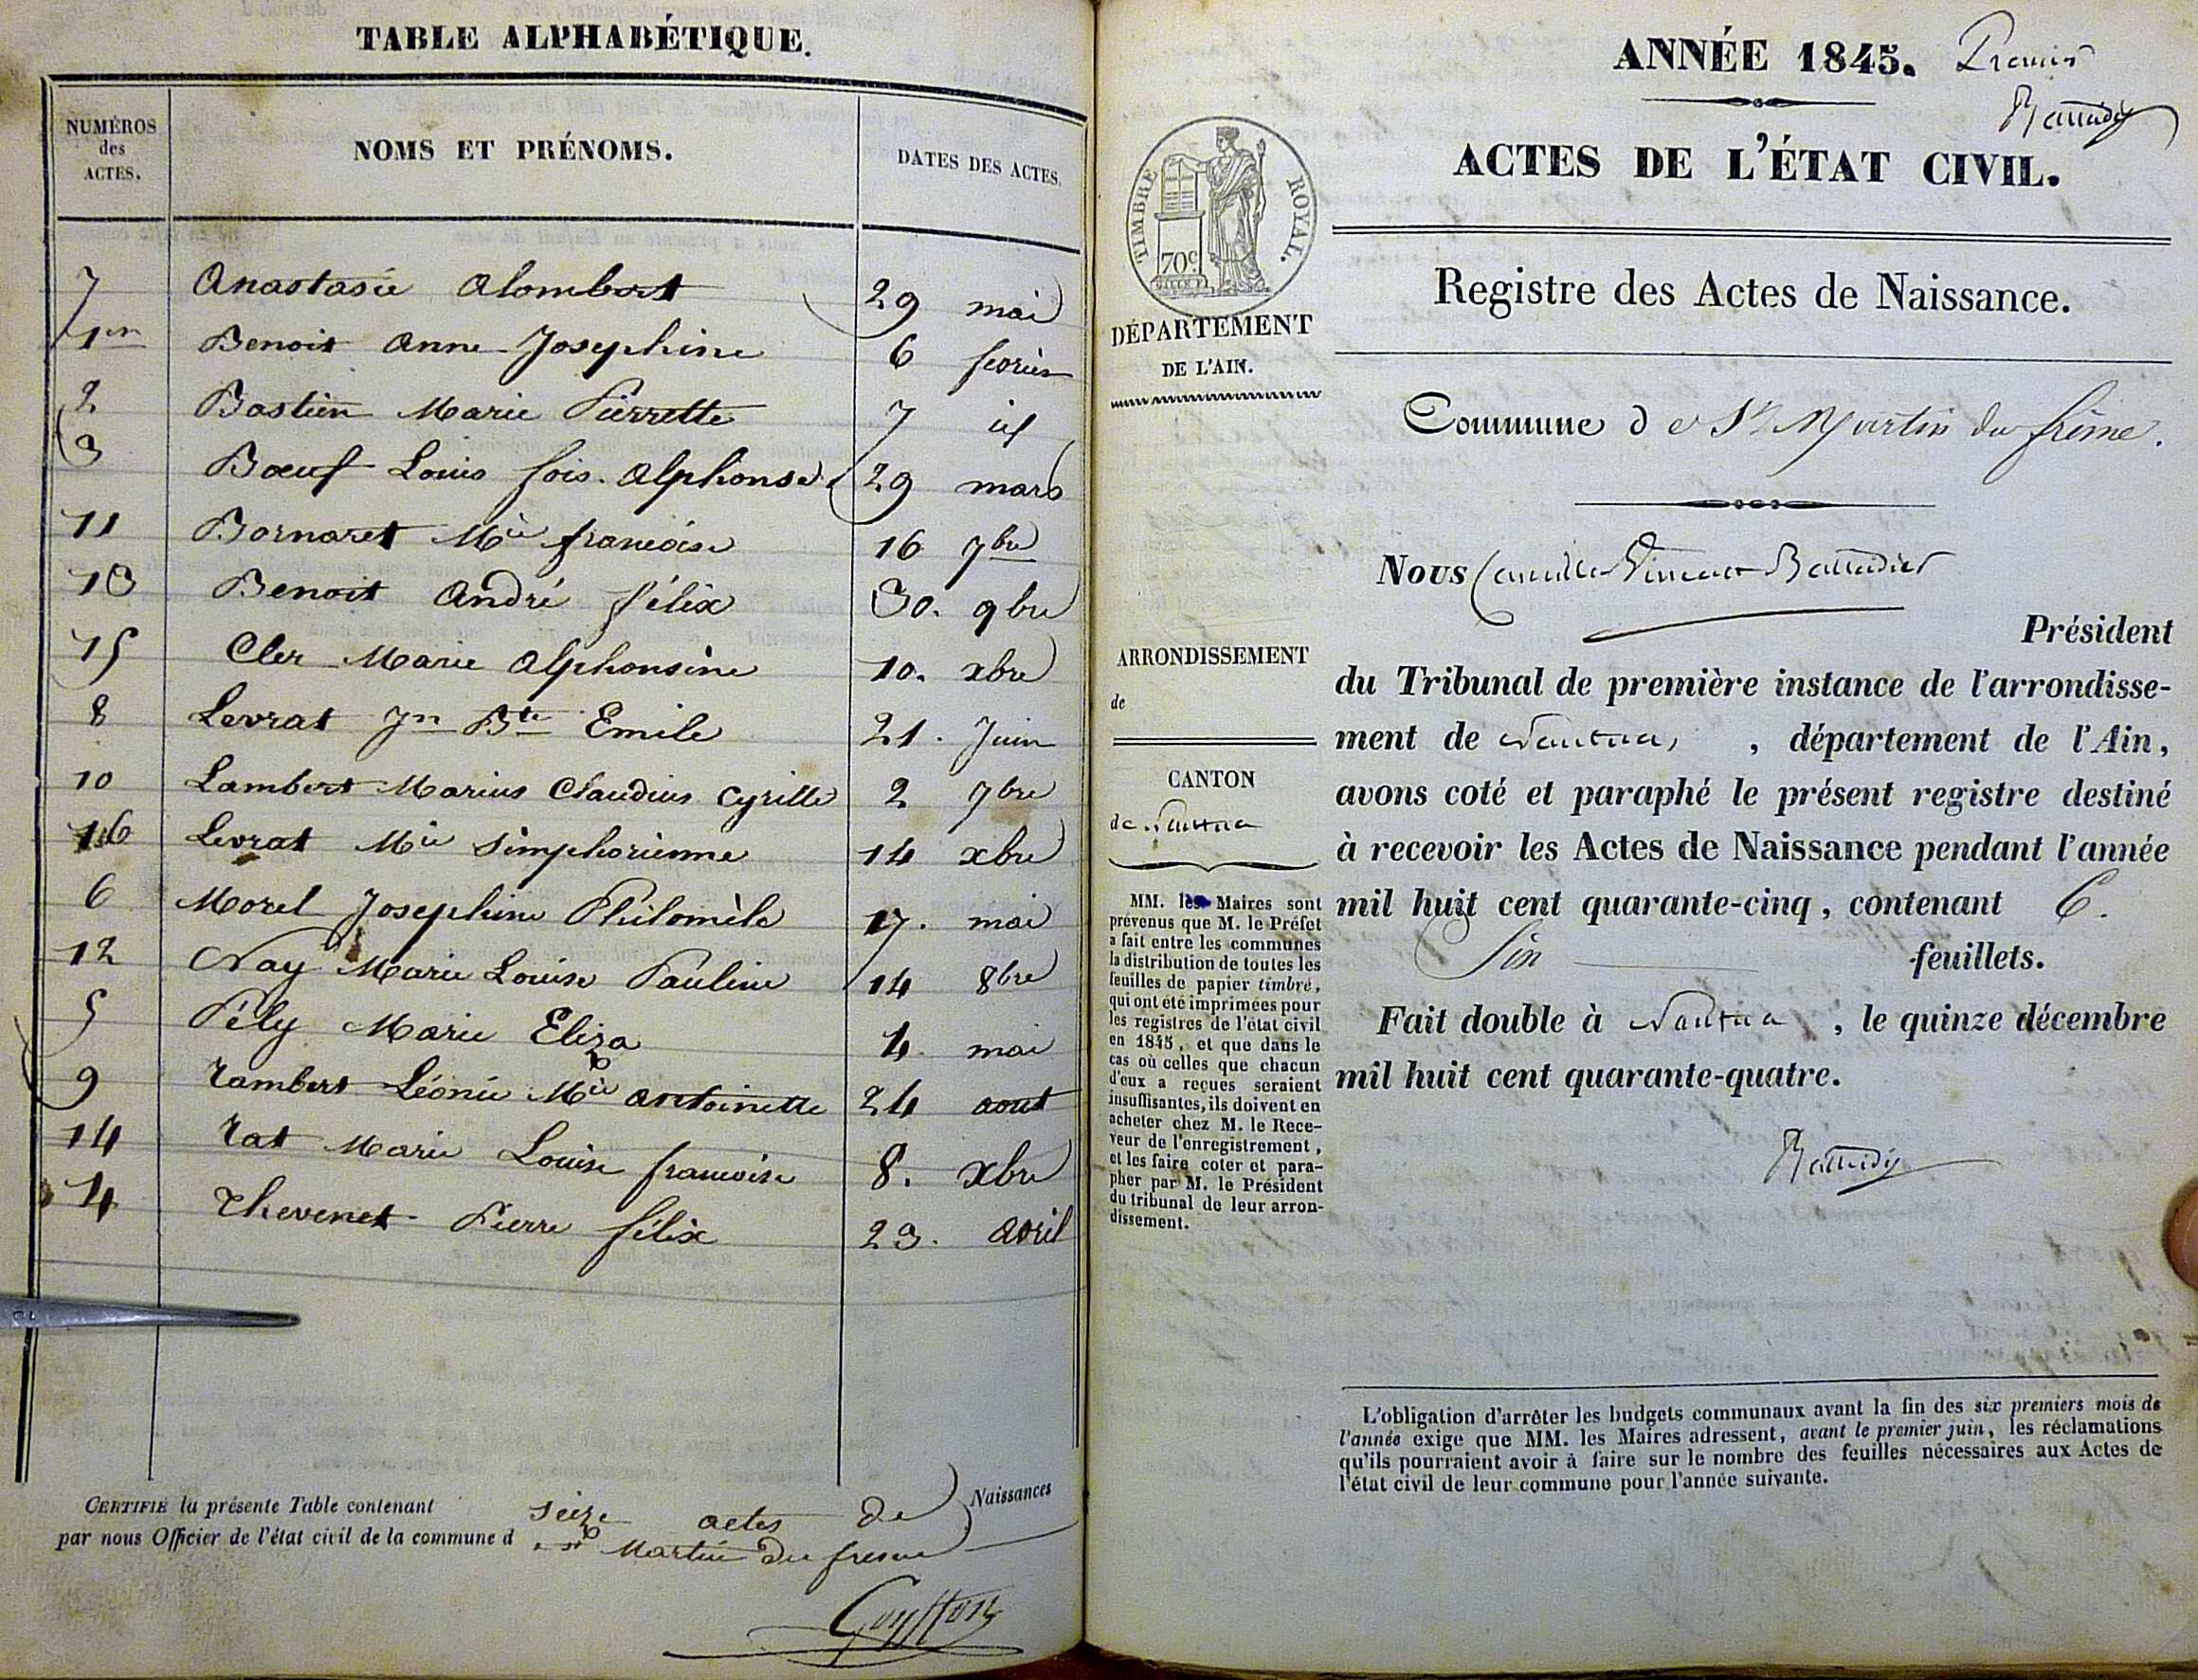 TABLE ALPHABÉTIQUE.
NUMÉROS des ACTES. NOMS ET PRÉNOMS. DATES DES ACTES.
7 Anastasie Alombert 29 mai
1er Benoit Anne Josephine 6 fevrier
2 Bastien Marie Pierrette 7 id
3 Bœuf Louis fois. Alphonse 29 mars
11 Bornaret Mie francoise 16 7bre
13 Benoit André félix 30. 9bre
15 Cler Marie Alphonsine 10. xbre
8 Levrat Jn Bte Emile 21. Juin
10 Lambert Marius Claudius Cyrille 2 7bre
16 Levrat Mie Simphorienne 14 xbre
6 Morel Josephine Philomèle 17. mai
12 Nay Marie Louise Pauline 14 8bre
5 Pély Marie Eliza 4. mai
9 rambert Léonie Mie antoinette 24 aout
14 rat Marie Louise francoise 8. xbre
4 thevenet Pierre félix 23. avril
CERTIFIÉ la présente Table contenant seize actes de Naissances
par nous Officier de l'état civil de la commune d e St Martin du fresne
ANNÉE 1845. Premier
ACTES DE L'ÉTAT CIVIL.
TIMBRE ROYAL.
70c
Registre des Actes de Naissance.
DÉPARTEMENT
DE L'AIN.
Commune d e St Martin du frêne.
Nous Camille Vincent
Président
ARRONDISSEMENT
de
du Tribunal de première instance de l'arrondisse-
ment de Nantua, , département de l'Ain,
avons coté et paraphé le présent registre destiné
à recevoir les Actes de Naissance pendant l'année
mil huit cent quarante-cinq, contenant 6.
Six feuillets.
Fait double à Nantua, le quinze décembre
mil huit cent quarante-quatre.
CANTON
de Nantua
MM. les Maires sont
prévenus que M. le Préfet
a fait entre les communes
la distribution de toutes les
feuilles de papier timbré,
qui ont été imprimées pour
les registres de l'état civil
en 1845, et que dans le
cas où celles que chacun
d'eux a reçues seraient
insuffisantes, ils doivent en
acheter chez M. le Rece-
veur de l'enregistrement,
et les faire coter et para-
pher par M. le Président
du tribunal de leur arron-
dissement.
L'obligation d'arrêter les budgets communaux avant la fin des six premiers mois de
l'année exige que MM. les Maires adressent, avant le premier juin, les réclamations
qu'ils pourraient avoir à faire sur le nombre des feuilles nécessaires aux Actes de
l'état civil de leur commune pour l'année suivante.